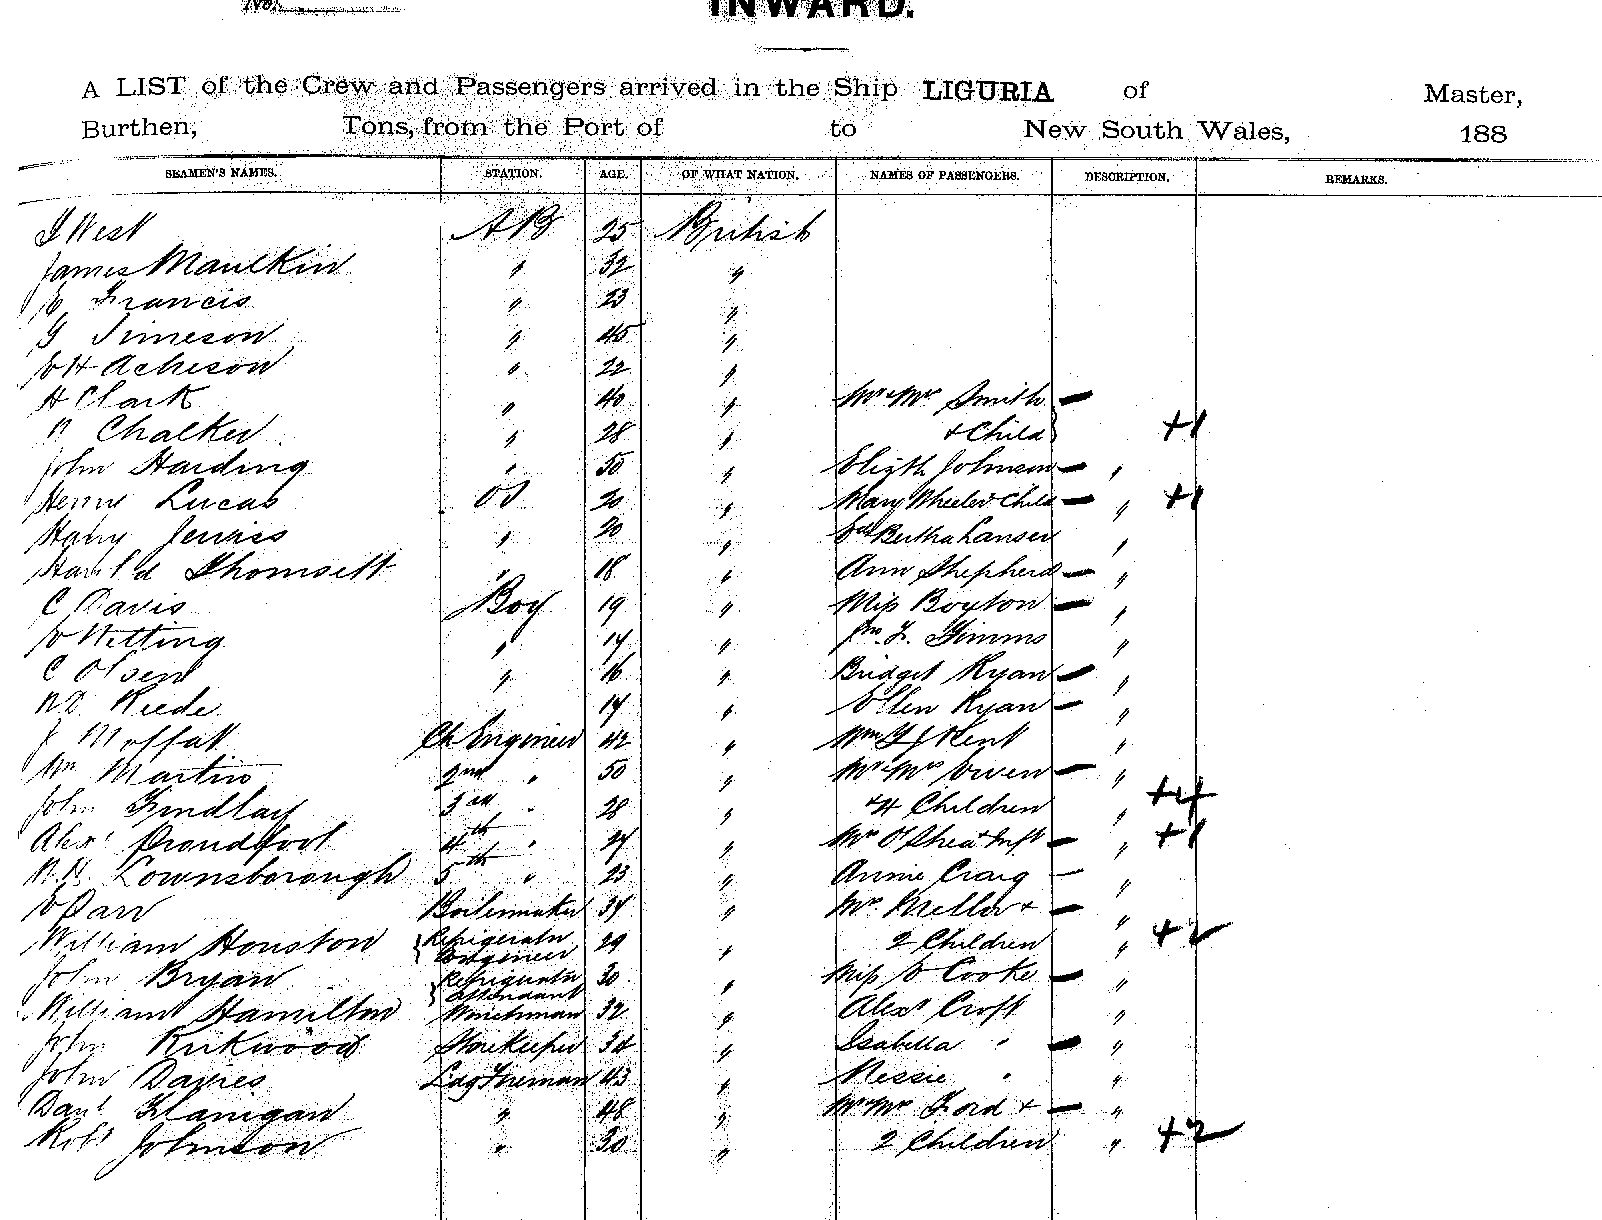 No.
INWARD.
A LIST of the Crew and Passengers arrived in the Ship LIGURIA of Master,
Burthen, Tons, from the Port of to New South Wales, 188
SEAMEN'S NAMES. STATION. AGE. OF WHAT NATION. NAMES OF PASSENGERS. DESCRIPTION. REMARKS.
J West AB 25 British
James Maulkin " 32 "
E Francis " 23 "
G Jimeson " 45 "
E H Acheson " 22 "
H Clark " 40 " Mr & Mrs Smith —
Chalker " 28 " + Child +1
John Harding " 50 " Elizth Johnson — "
Henry Lucas OS 20 " Mary Wheeler + Child — " +1
Harry Jewiss " 20 " Bertha Lansen "
Harold Thomsett " 18 " Ann Shepherd — "
C Davis Boy 19 " Miss Boyton — "
Netting " 17 " "
C Olsen " 16 " Bridget Ryan — "
Reede 17 " Ellen Ryan — "
J Moffat Ch Engineer 42 " Kent "
Wm Martin 2nd " 50 " Mr & Mrs Owen — "
John Findlay 3rd " 28 " +4 Children " +4
Alexr Proudfoot 4th " 27 " Mrs O'Shea + Inft — " +1
Lownsborough 5th " 23 " Annie Craig — "
Boilermaker 37 " Mrs Mellor + — "
William Houston Refrigeratr Engineer 29 " 2 Children " +2
John Bryan Refrigeratr Attendant 30 " Miss E Cooke — "
William Hamilton Winchman 32 " Alexr Croft "
John Kirkwood Storekeeper 34 " Isabella " — "
John Davies Ldg Fireman 43 " Nessie " "
Danl Flanigan " 48 " Mr & Mrs Ford + — "
Robt Johnson " 30 " 2 Children " +2